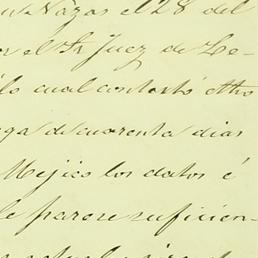 Nazas el 28 del
or el Sr Juez de Le-
lo cual contestó otro
ga de cuarenta dias
Mejico los datos é
le parese suficien-